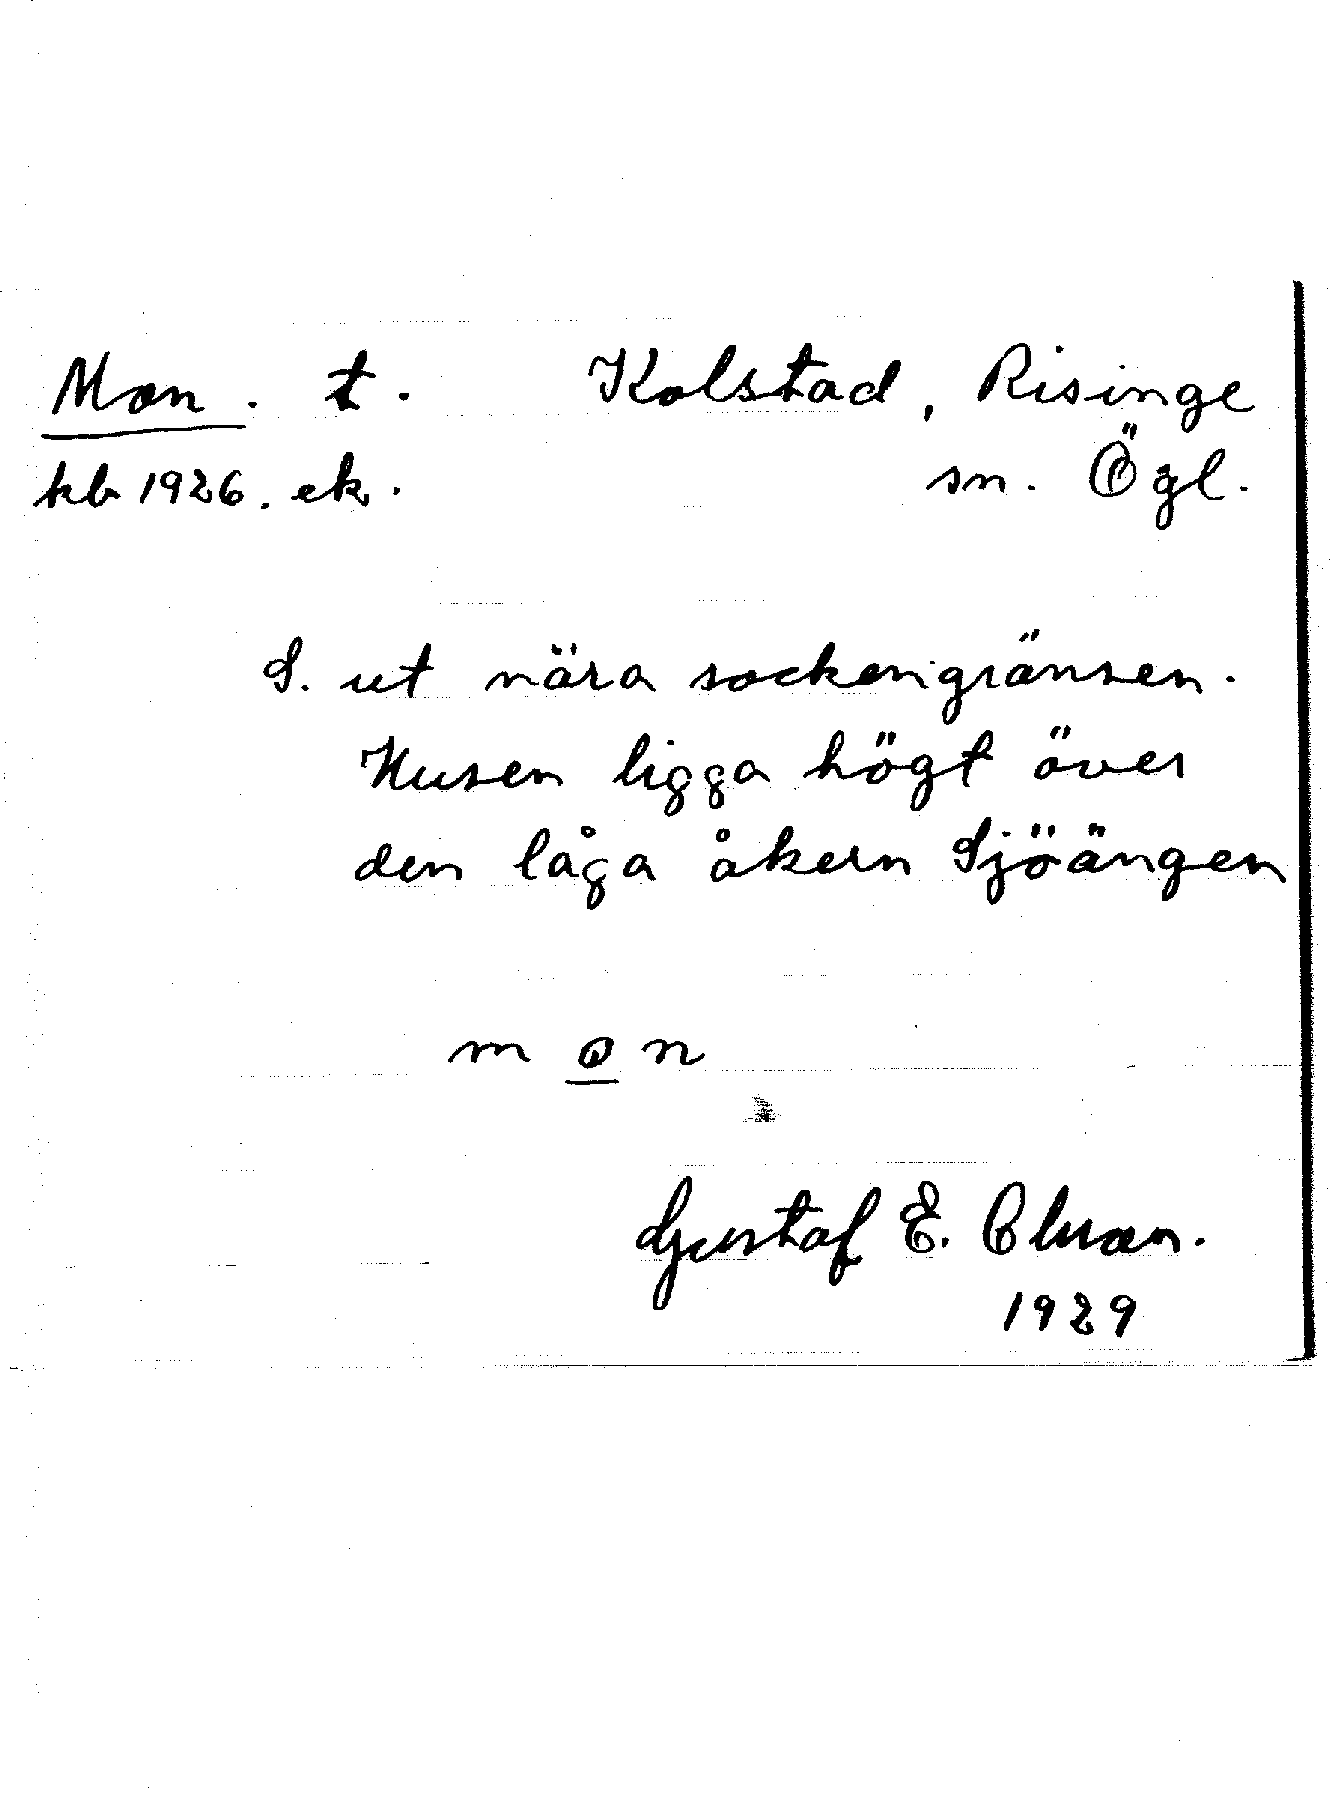 Mon. t. Kolstad, Risinge
kb 1926. ek. sn. Ögl.
S. ut nära sockengränsen.
Husen ligga högt över
den låga åkern Sjöängen
m o n
Gustaf E.
1929